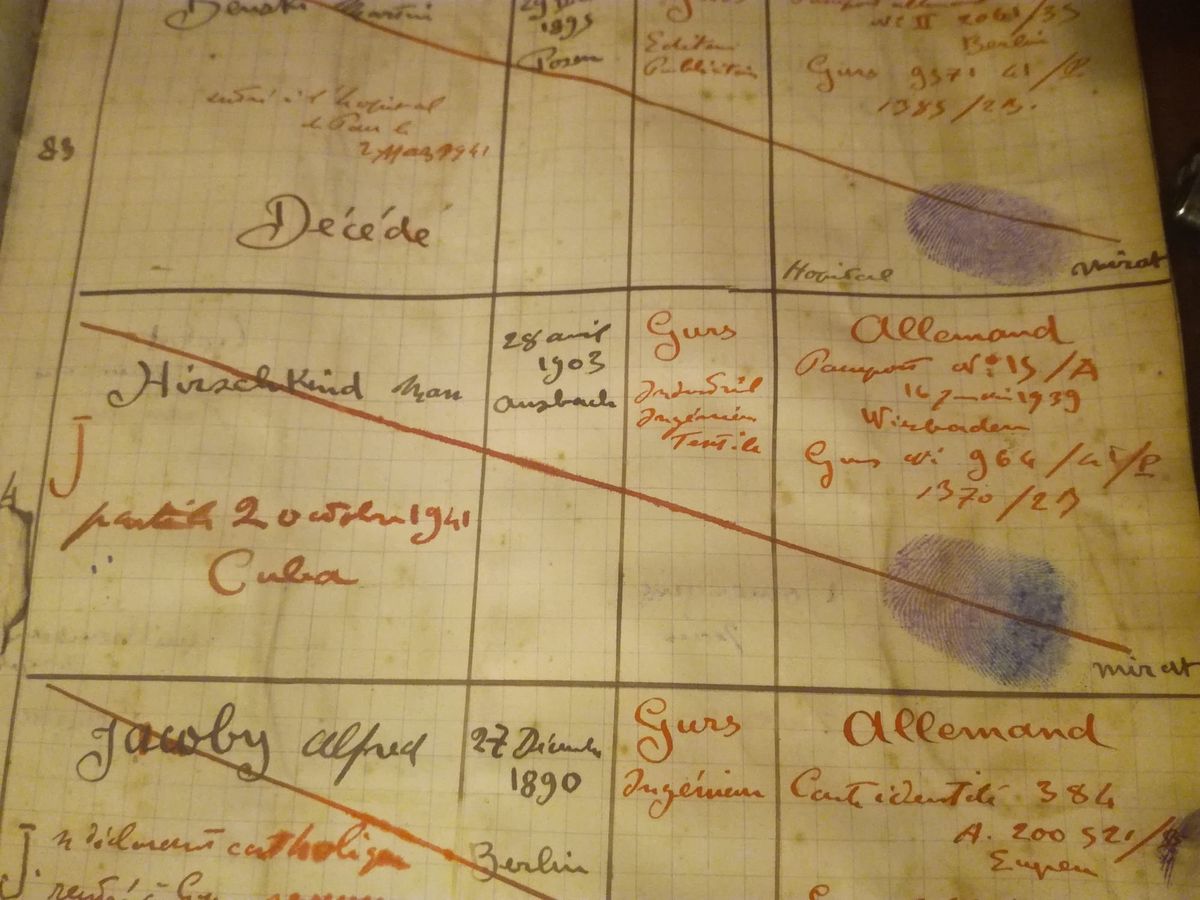 1895
Posen
Editeur
Publiciste
N° II 2061/35
Berlin
Gurs 9371 41/P
1385/2B.
entré à l'hopital
de Pau le
2 Mars 1941
83
Décédé
Hopital
mirat
Hirschkind Max
28 avril
1903
Ansbach
Gurs
Industriel
Ingénieur
Textile
Allemand
Passeport N° 15/A
1939
Wiesbaden
Gurs N° 964/41/P
1370/2B
J
parti le 2 octobre 1941
Cuba
mirat
Jacoby Alfred
27 Décembre
1890
Berlin
Gurs
Ingénieur
Allemand
Carte identité 384
A. 200 521/
Eupen
J.
catholique